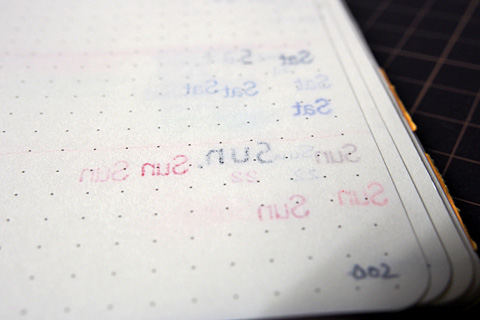 Sat S
Sat
Sat Sat
Sat
Sun Sun
Sun Sun
22 22
Sun
Sun
002